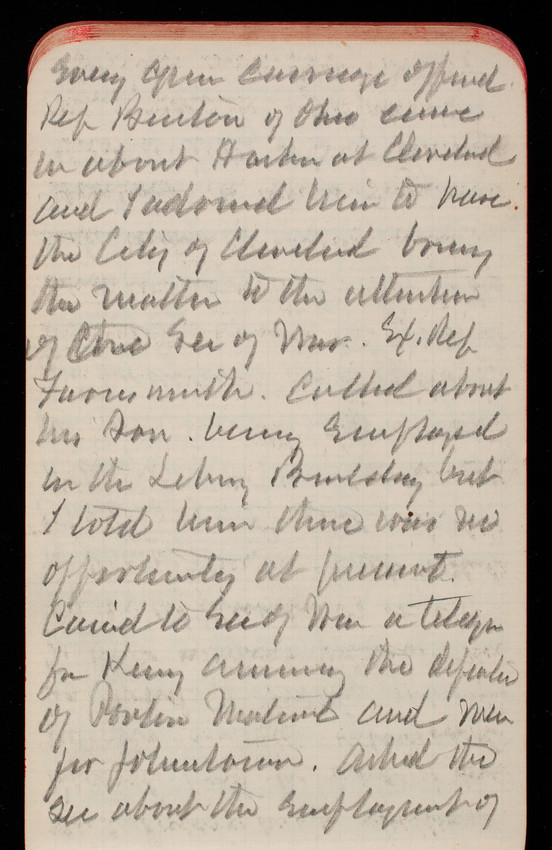 every open carriage offered.
Rep Benton of Ohio came
in about Harbor at Cleveland
and I advised him to have
the City of Cleveland bring
the matter to the attention
of the Sec of War. Ex. Rep
Called about
his Son. being Employed
in the Library Building but
I told him there was no
opportunity at present.
Carried to Sec of War a telegm
fr King announcing the departure
of Pontoon Material and men
for Johnstown. Asked the
Sec about the Employment of